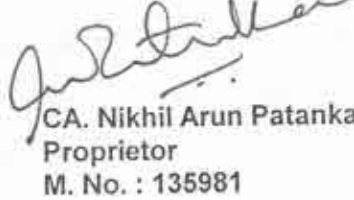 CA. Nikhil Arun Patanka
Proprietor
M. No. : 135981